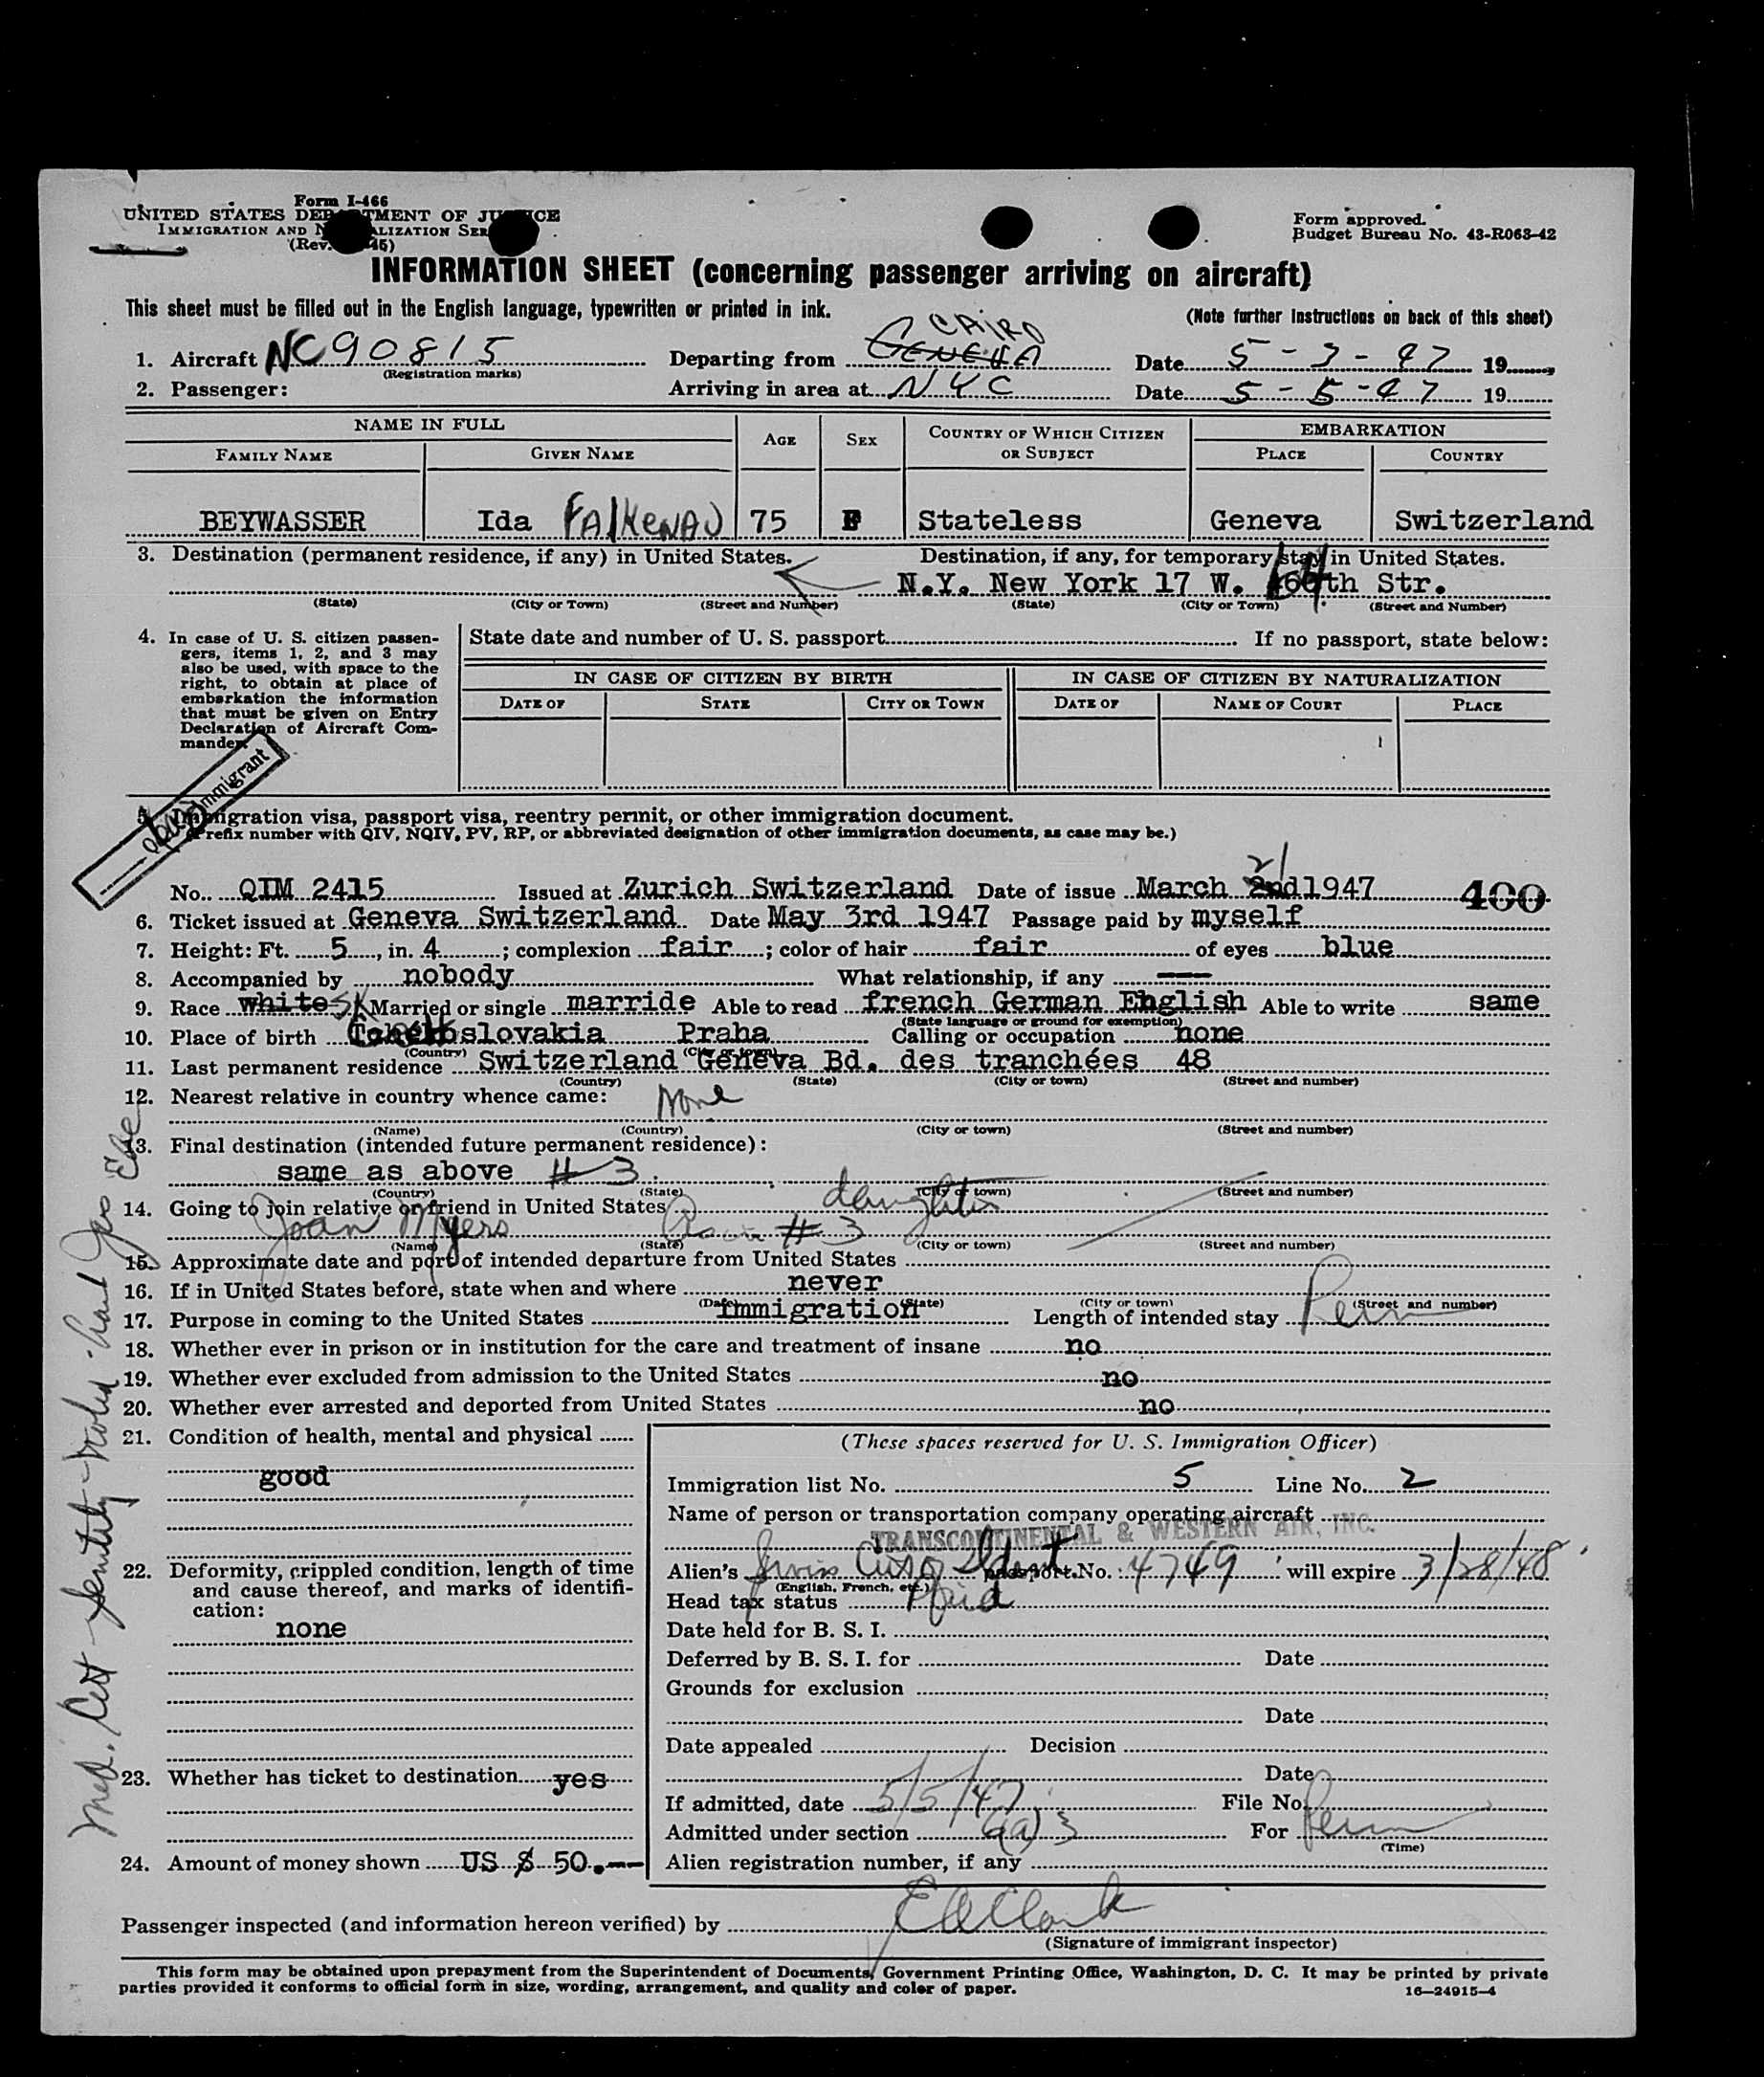 Form I-466
UNITED STATES DEPARTMENT OF JUSTICE
IMMIGRATION AND NATURALIZATION SER
(Rev. 45)
Form approved.
Budget Bureau No. 43-R063-42
INFORMATION SHEET (concerning passenger arriving on aircraft)
This sheet must be filled out in the English language, typewritten or printed in ink.
(Note further instructions on back of this sheet)
CAIRO
1. Aircraft NC90815 Departing from GENEVA Date 5-3-47 19
(Registration marks)
2. Passenger: Arriving in area at NYC Date 5-5-47 19
NAME IN FULL AGE SEX COUNTRY OF WHICH CITIZEN OR SUBJECT EMBARKATION
FAMILY NAME GIVEN NAME PLACE COUNTRY
BEYWASSER Ida FALKENAU 75 F Stateless Geneva Switzerland
3. Destination (permanent residence, if any) in United States. Destination, if any, for temporary stay in United States.
N.Y. New York 17 W. 64th Str.
(State) (City or Town) (Street and Number) (State) (City or Town) (Street and Number)
4. In case of U. S. citizen passen-
gers, items 1, 2, and 3 may
also be used, with space to the
right, to obtain at place of
embarkation the information
that must be given on Entry
Declaration of Aircraft Com-
mander.
State date and number of U. S. passport If no passport, state below:
IN CASE OF CITIZEN BY BIRTH IN CASE OF CITIZEN BY NATURALIZATION
DATE OF STATE CITY OR TOWN DATE OF NAME OF COURT PLACE
Quota Immigrant
5. Immigration visa, passport visa, reentry permit, or other immigration document.
(Prefix number with QIV, NQIV, PV, RP, or abbreviated designation of other immigration documents, as case may be.)
21
No. QIM 2415 Issued at Zurich Switzerland Date of issue March 2nd 1947 400
6. Ticket issued at Geneva Switzerland Date May 3rd 1947 Passage paid by myself
7. Height: Ft. 5, in. 4; complexion fair; color of hair fair of eyes blue
8. Accompanied by nobody What relationship, if any ----
9. Race white Married or single marride Able to read french German English Able to write same
(State language or ground for exemption)
10. Place of birth Czechoslovakia Praha Calling or occupation none
(Country) (City or town)
11. Last permanent residence Switzerland Geneva Bd. des tranchées 48
(Country) (State) (City or town) (Street and number)
12. Nearest relative in country whence came: None
(Name) (Country) (City or town) (Street and number)
13. Final destination (intended future permanent residence):
same as above # 3
(Country) (State) (City or town) (Street and number)
14. Going to join relative or friend in United States daughter
Joan Myers # 3
(Name) (State) (City or town) (Street and number)
15. Approximate date and port of intended departure from United States
16. If in United States before, state when and where never
(Date) (State) (City or town) (Street and number)
17. Purpose in coming to the United States immigration Length of intended stay Perm
18. Whether ever in prison or in institution for the care and treatment of insane no
19. Whether ever excluded from admission to the United States no
20. Whether ever arrested and deported from United States no
21. Condition of health, mental and physical
good
22. Deformity, crippled condition, length of time
and cause thereof, and marks of identifi-
cation:
none
23. Whether has ticket to destination yes
24. Amount of money shown US $ 50.--
(These spaces reserved for U. S. Immigration Officer)
Immigration list No. 5 Line No. 2
Name of person or transportation company operating aircraft
TRANSCONTINENTAL & WESTERN AIR, INC.
Alien's Swiss Ident passport No. 4749 will expire 3/28/48
(English, French, etc.)
Head tax status Paid
Date held for B. S. I.
Deferred by B. S. I. for Date
Grounds for exclusion
Date
Date appealed Decision
Date
If admitted, date 5/5/47 File No.
Admitted under section 6(a)3 For Perm
(Time)
Alien registration number, if any
Passenger inspected (and information hereon verified) by E A Clark
(Signature of immigrant inspector)
This form may be obtained upon prepayment from the Superintendent of Documents, Government Printing Office, Washington, D. C. It may be printed by private
parties provided it conforms to official form in size, wording, arrangement, and quality and color of paper.
16—24915-4
Med. Cert Senility